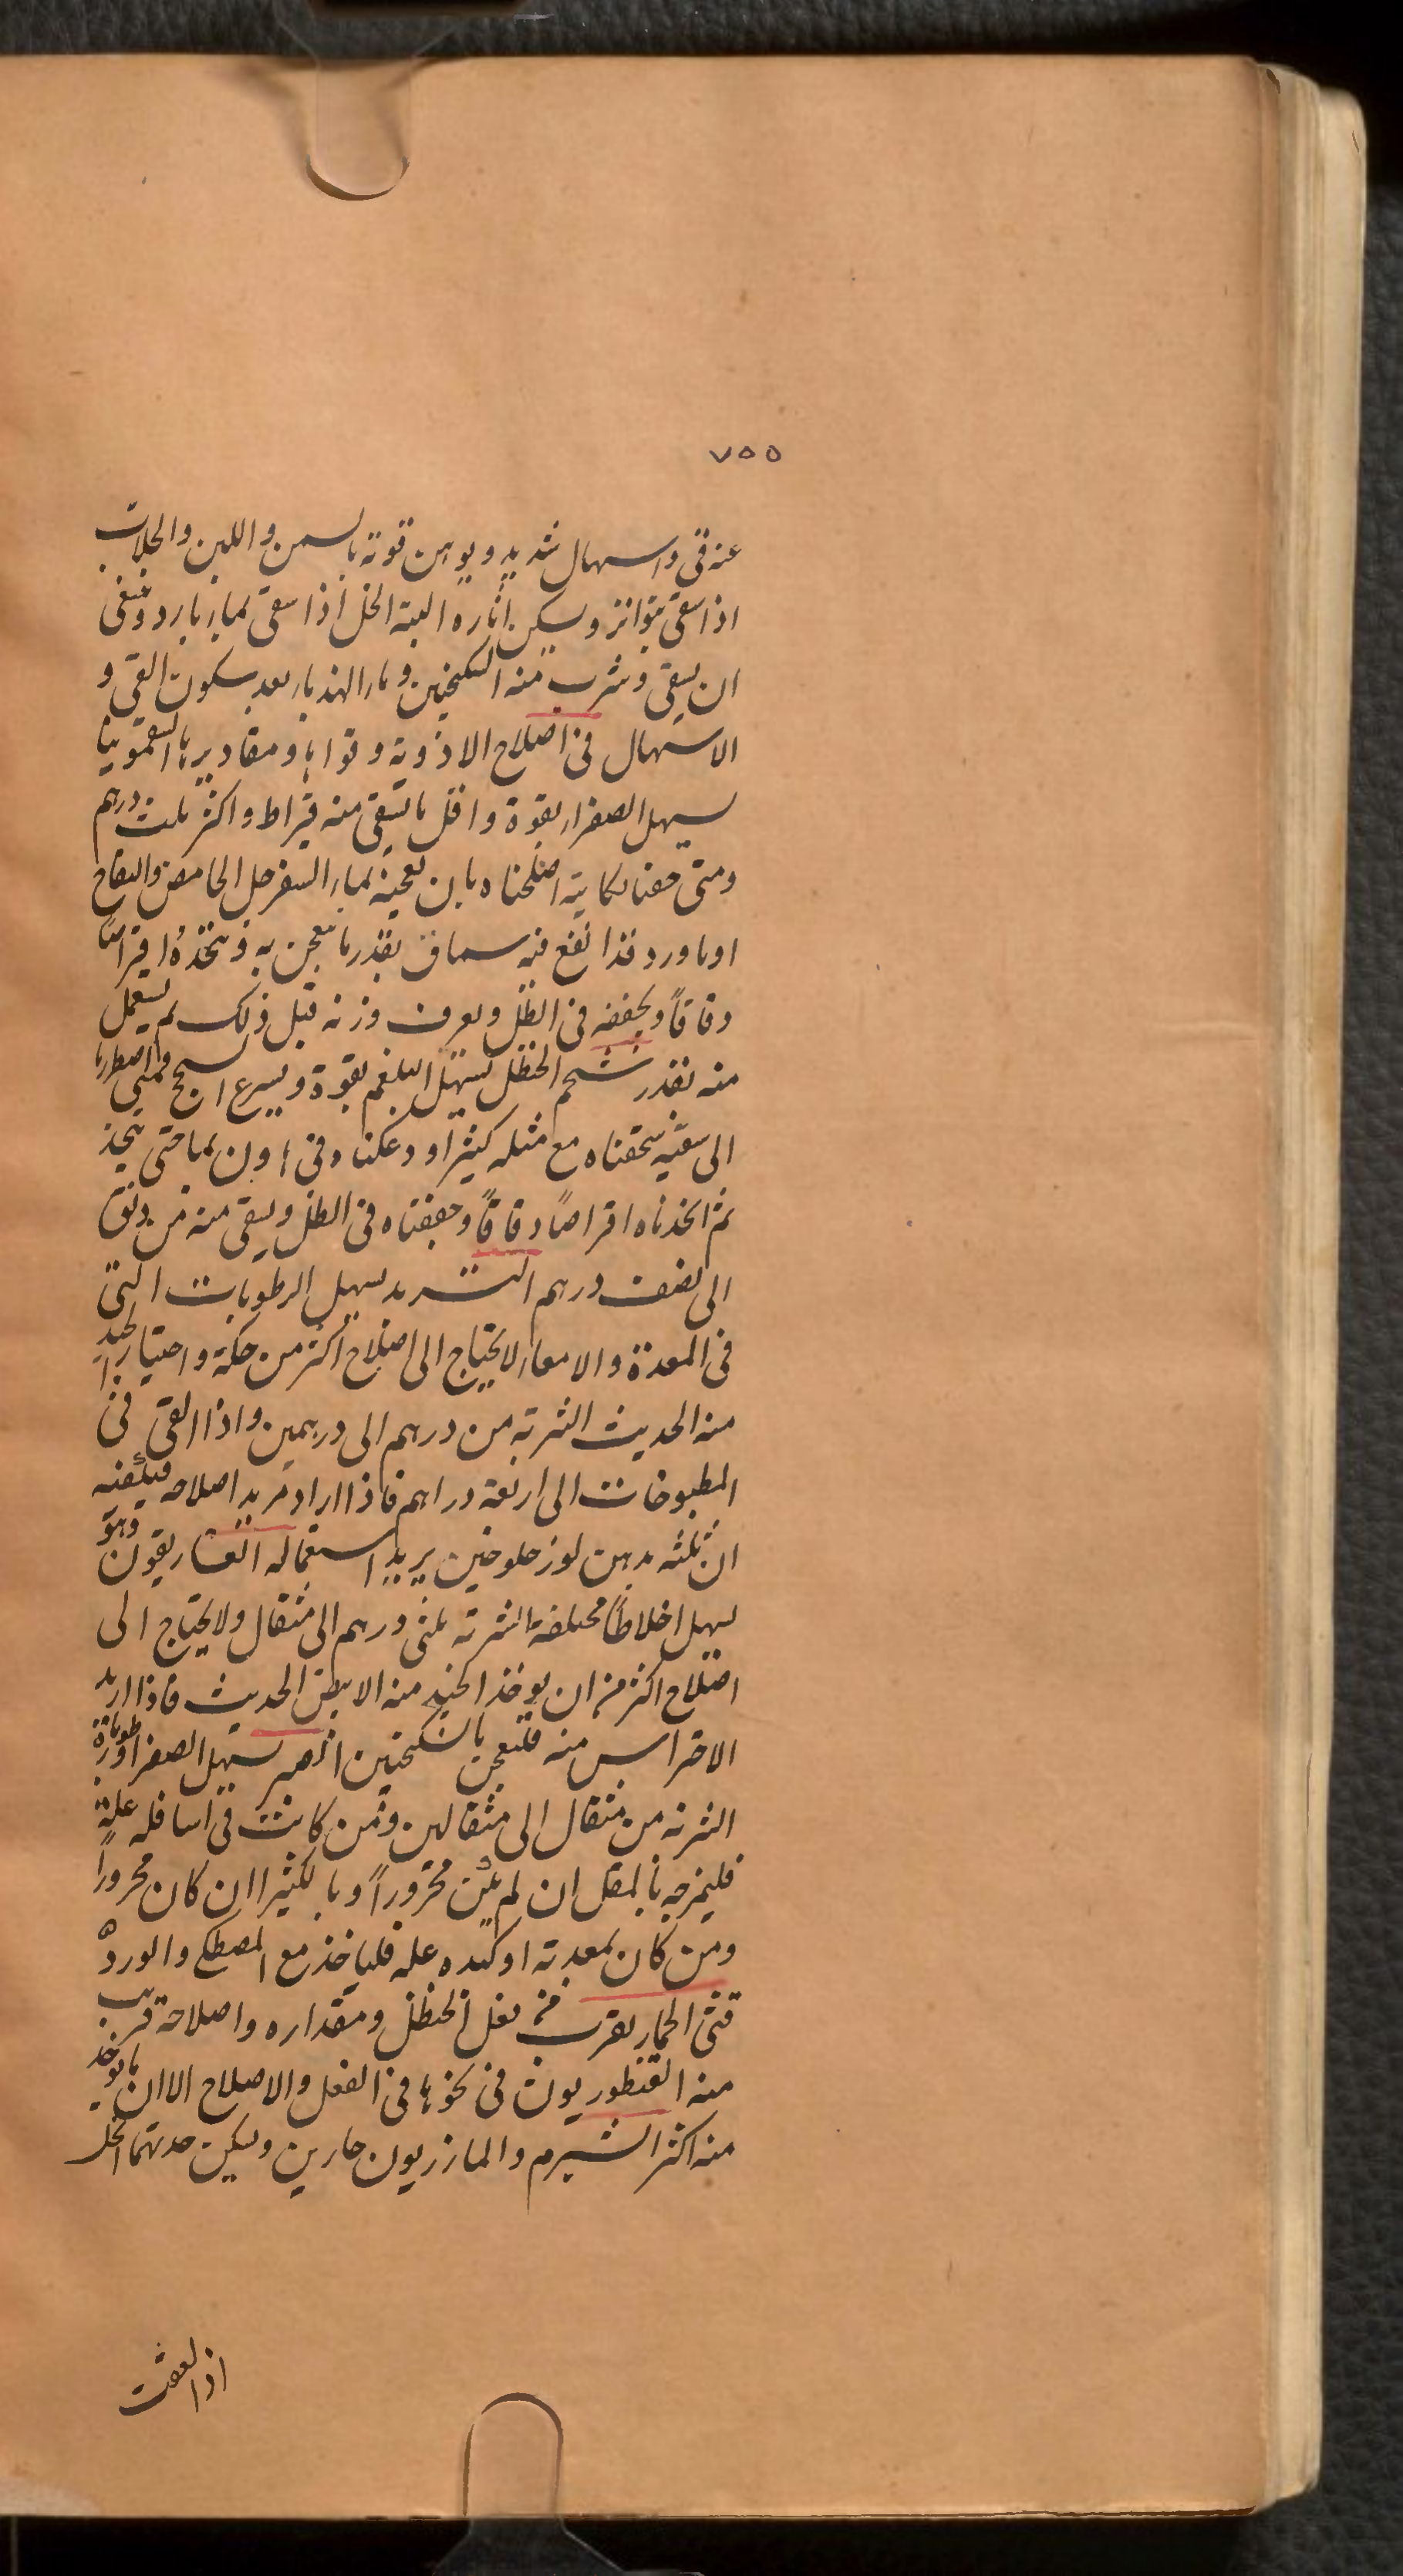 ٧٥٥
عنه قئ واسهال شديد ويوهن قوته بالسمن واللبن والجلاب
اذا سقى بتواتر ويسكن اثاره البتة الخل اذا سقى بماء بارد وينبغى
ان يسقى وشرب منه السكنجبين وماء الهندباء بعد سكون القئ و
الاسهال فى اصلاح الادوية وقواها ومقاديرها السقمونيا
يسهل الصفراء بقوة واقل ما يسقى منه قيراط واكثر ثلث درهم
ومتى خفنا نكايته اصلحناه بان نعجنه بماء السفرجل الحامض والتفاح
او ماورد قد انقع فيه سماق بقدر ما يعجن به ونتخذه اقراصا
دقاقاً ويجففه فى الظل ويعرف وزنه قبل ذلك ثم يستعمل
منه بقدر شحم الحنظل يسهل البلغم بقوة ويسرع السحج فمتى اضطررنا
الى سقيه سحقناه مع مثله كثيرا ودعكناه فى هاون بماء حتى يتخذ
ثم اتخذناه اقراصاً دقاقاً وجففناه فى الظل ويسقى منه من دانق
الى نصف درهم التربد يسهل الرطوبات التى
فى المعدة والامعاء لا يحتاج الى اصلاح اكثر من حكه واختيار الجيد
منه الحديث الشربة من درهم الى درهمين واذا القى فى
المطبوخات الى اربعة دراهم فاذا اراد مريد اصلاحه فيكفيه
ان يلته بدهن لوز حلو حين يريد استعماله الغاريقون وهو
يسهل اخلاطاً مختلفة الشربة ثلثى درهم الى مثقال ولا يحتاج الى
اصلاح اكثر من ان يوخذ الجيد منه الابيض الحديث فاذا اريد
الاحتراس منه فليعجن بالسكنجبين الصبر يسهل الصفراء ورطوبات
الشربة من مثقال الى مثقالين ومن كانت فى اسافله علة
فليمزجه بالمقل ان لم يكن محروراً وبالكثيرا ان كان محروراً
ومن كان بمعدته او كبده علة فلياخذ مع المصطكى والورد
قثى الحمار يقرب من فعل الحنظل ومقداره واصلاحه قريب
منه القنطوريون فى نحوها فى الفعل والاصلاح الا ان ما يوخذ
منه اكثر الشبرم والمازريون حارين ويسكن حدتهما الخل
اذا نقعت